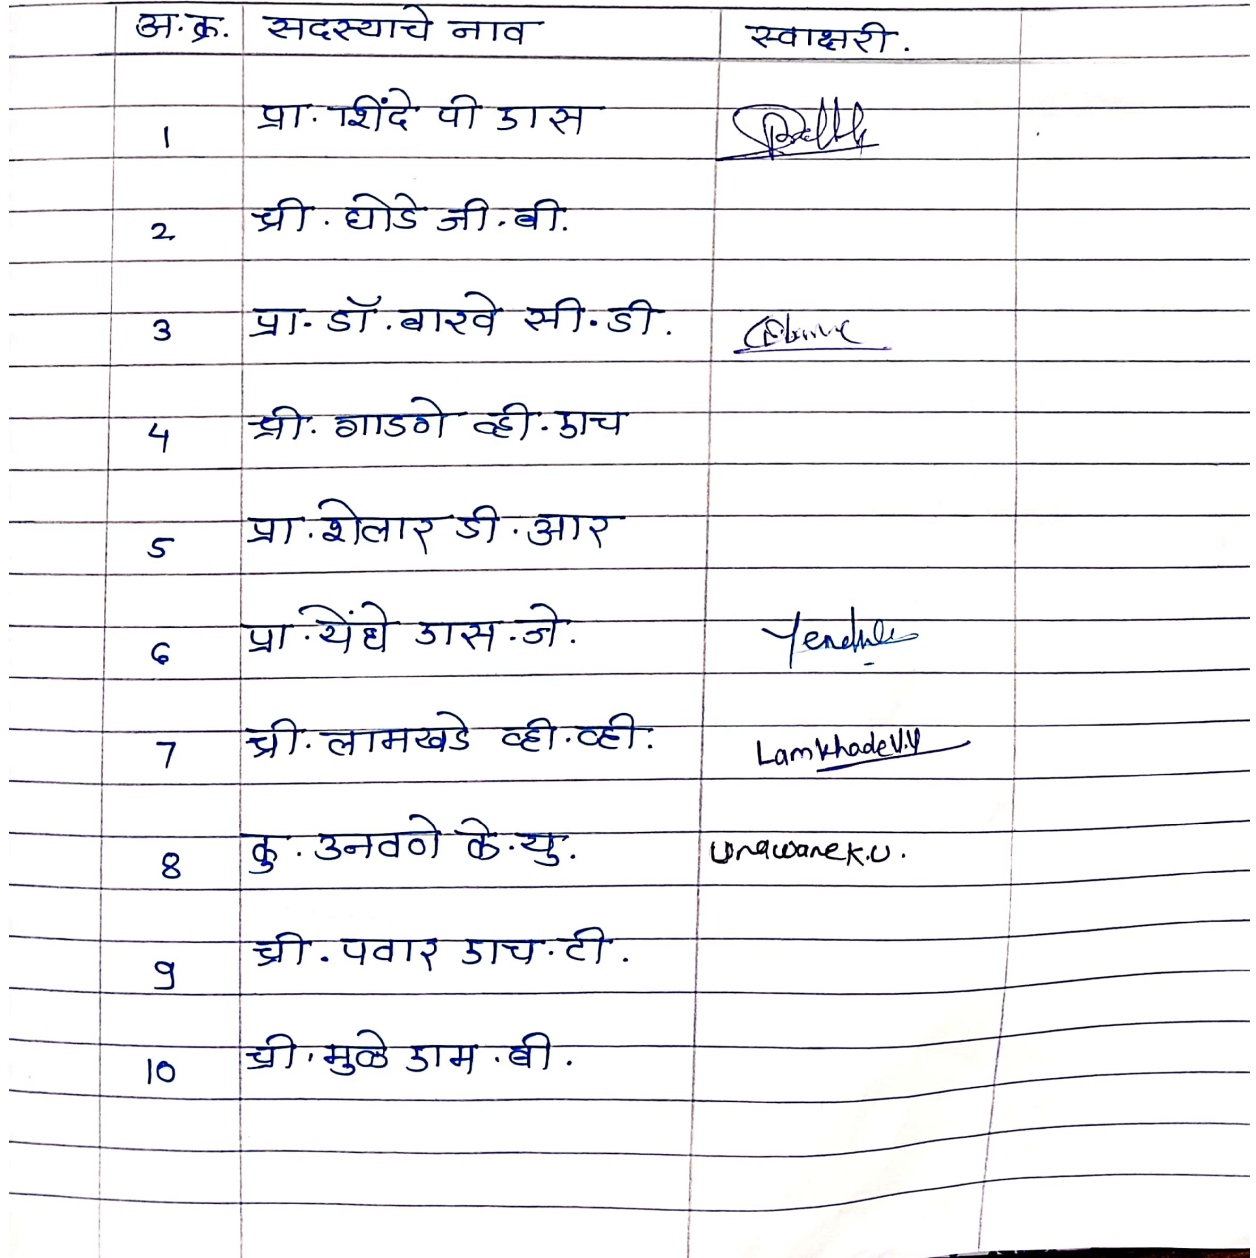 अ.क्र. सदस्याचे नाव स्वाक्षरी.
1 प्रा. शिंदे पी एस
2 श्री. घोडे जी.बी.
3 प्रा. डॉ. बारवे सी.डी.
4 श्री. गाडगे व्ही.एच
5 प्रा. शेलार डी.आर
6 प्रा. येंधे एस.जे. Yendhe
7 श्री. लामखडे व्ही.व्ही. Lamkhade V.V
8 कु. उनवणे के.यु. Unawane K.U.
9 श्री. पवार एच.टी.
10 श्री. मुळे एम.बी.